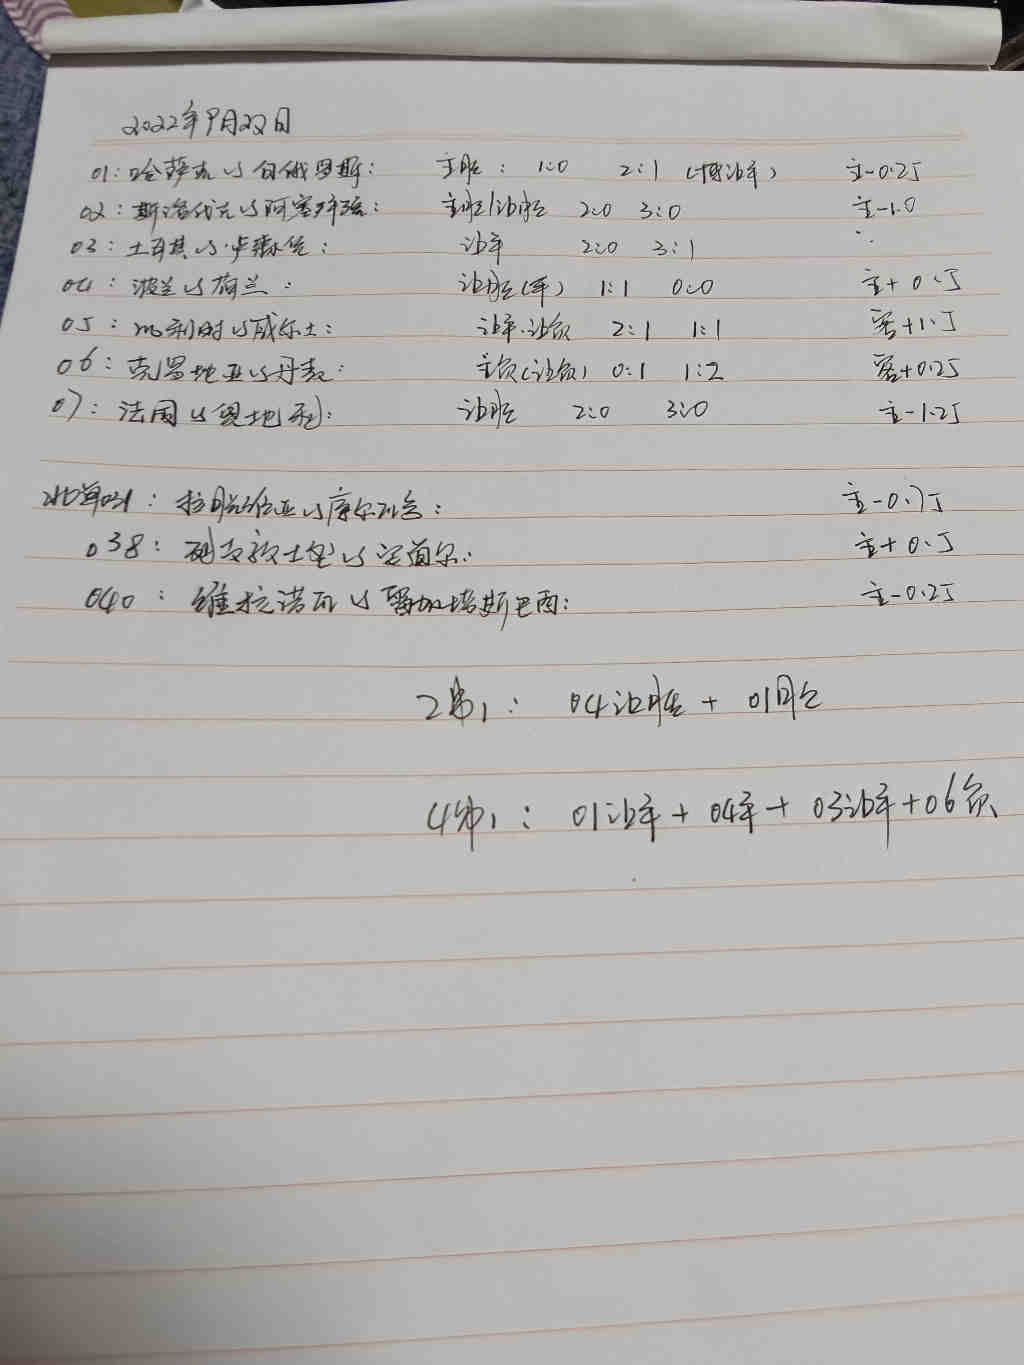 2022年9月22日
01:哈萨克vs白俄罗斯: 主胜: 1:0 2:1 (博让平) 主-0.25
02:斯洛伐克vs阿塞拜疆: 主胜/让胜 2:0 3:0 主-1.0
03:土耳其vs卢森堡: 让平 2:0 3:1
04:波兰vs荷兰: 让胜(平) 1:1 0:0 主+0.5
05:比利时vs威尔士: 让平.让负 2:1 1:1 客+1.5
06:克罗地亚vs丹麦: 主负(让负) 0:1 1:2 客+0.25
07:法国vs奥地利: 让胜 2:0 3:0 主-1.25
北单031:拉脱维亚vs摩尔多瓦: 主-0.75
038:列支敦士登vs安道尔: 主+0.5
040:维拉诺瓦vs雷加塔斯巴西: 主-0.25
2串1: 04让胜+01胜
4串1: 01让平+04平+03让平+06负